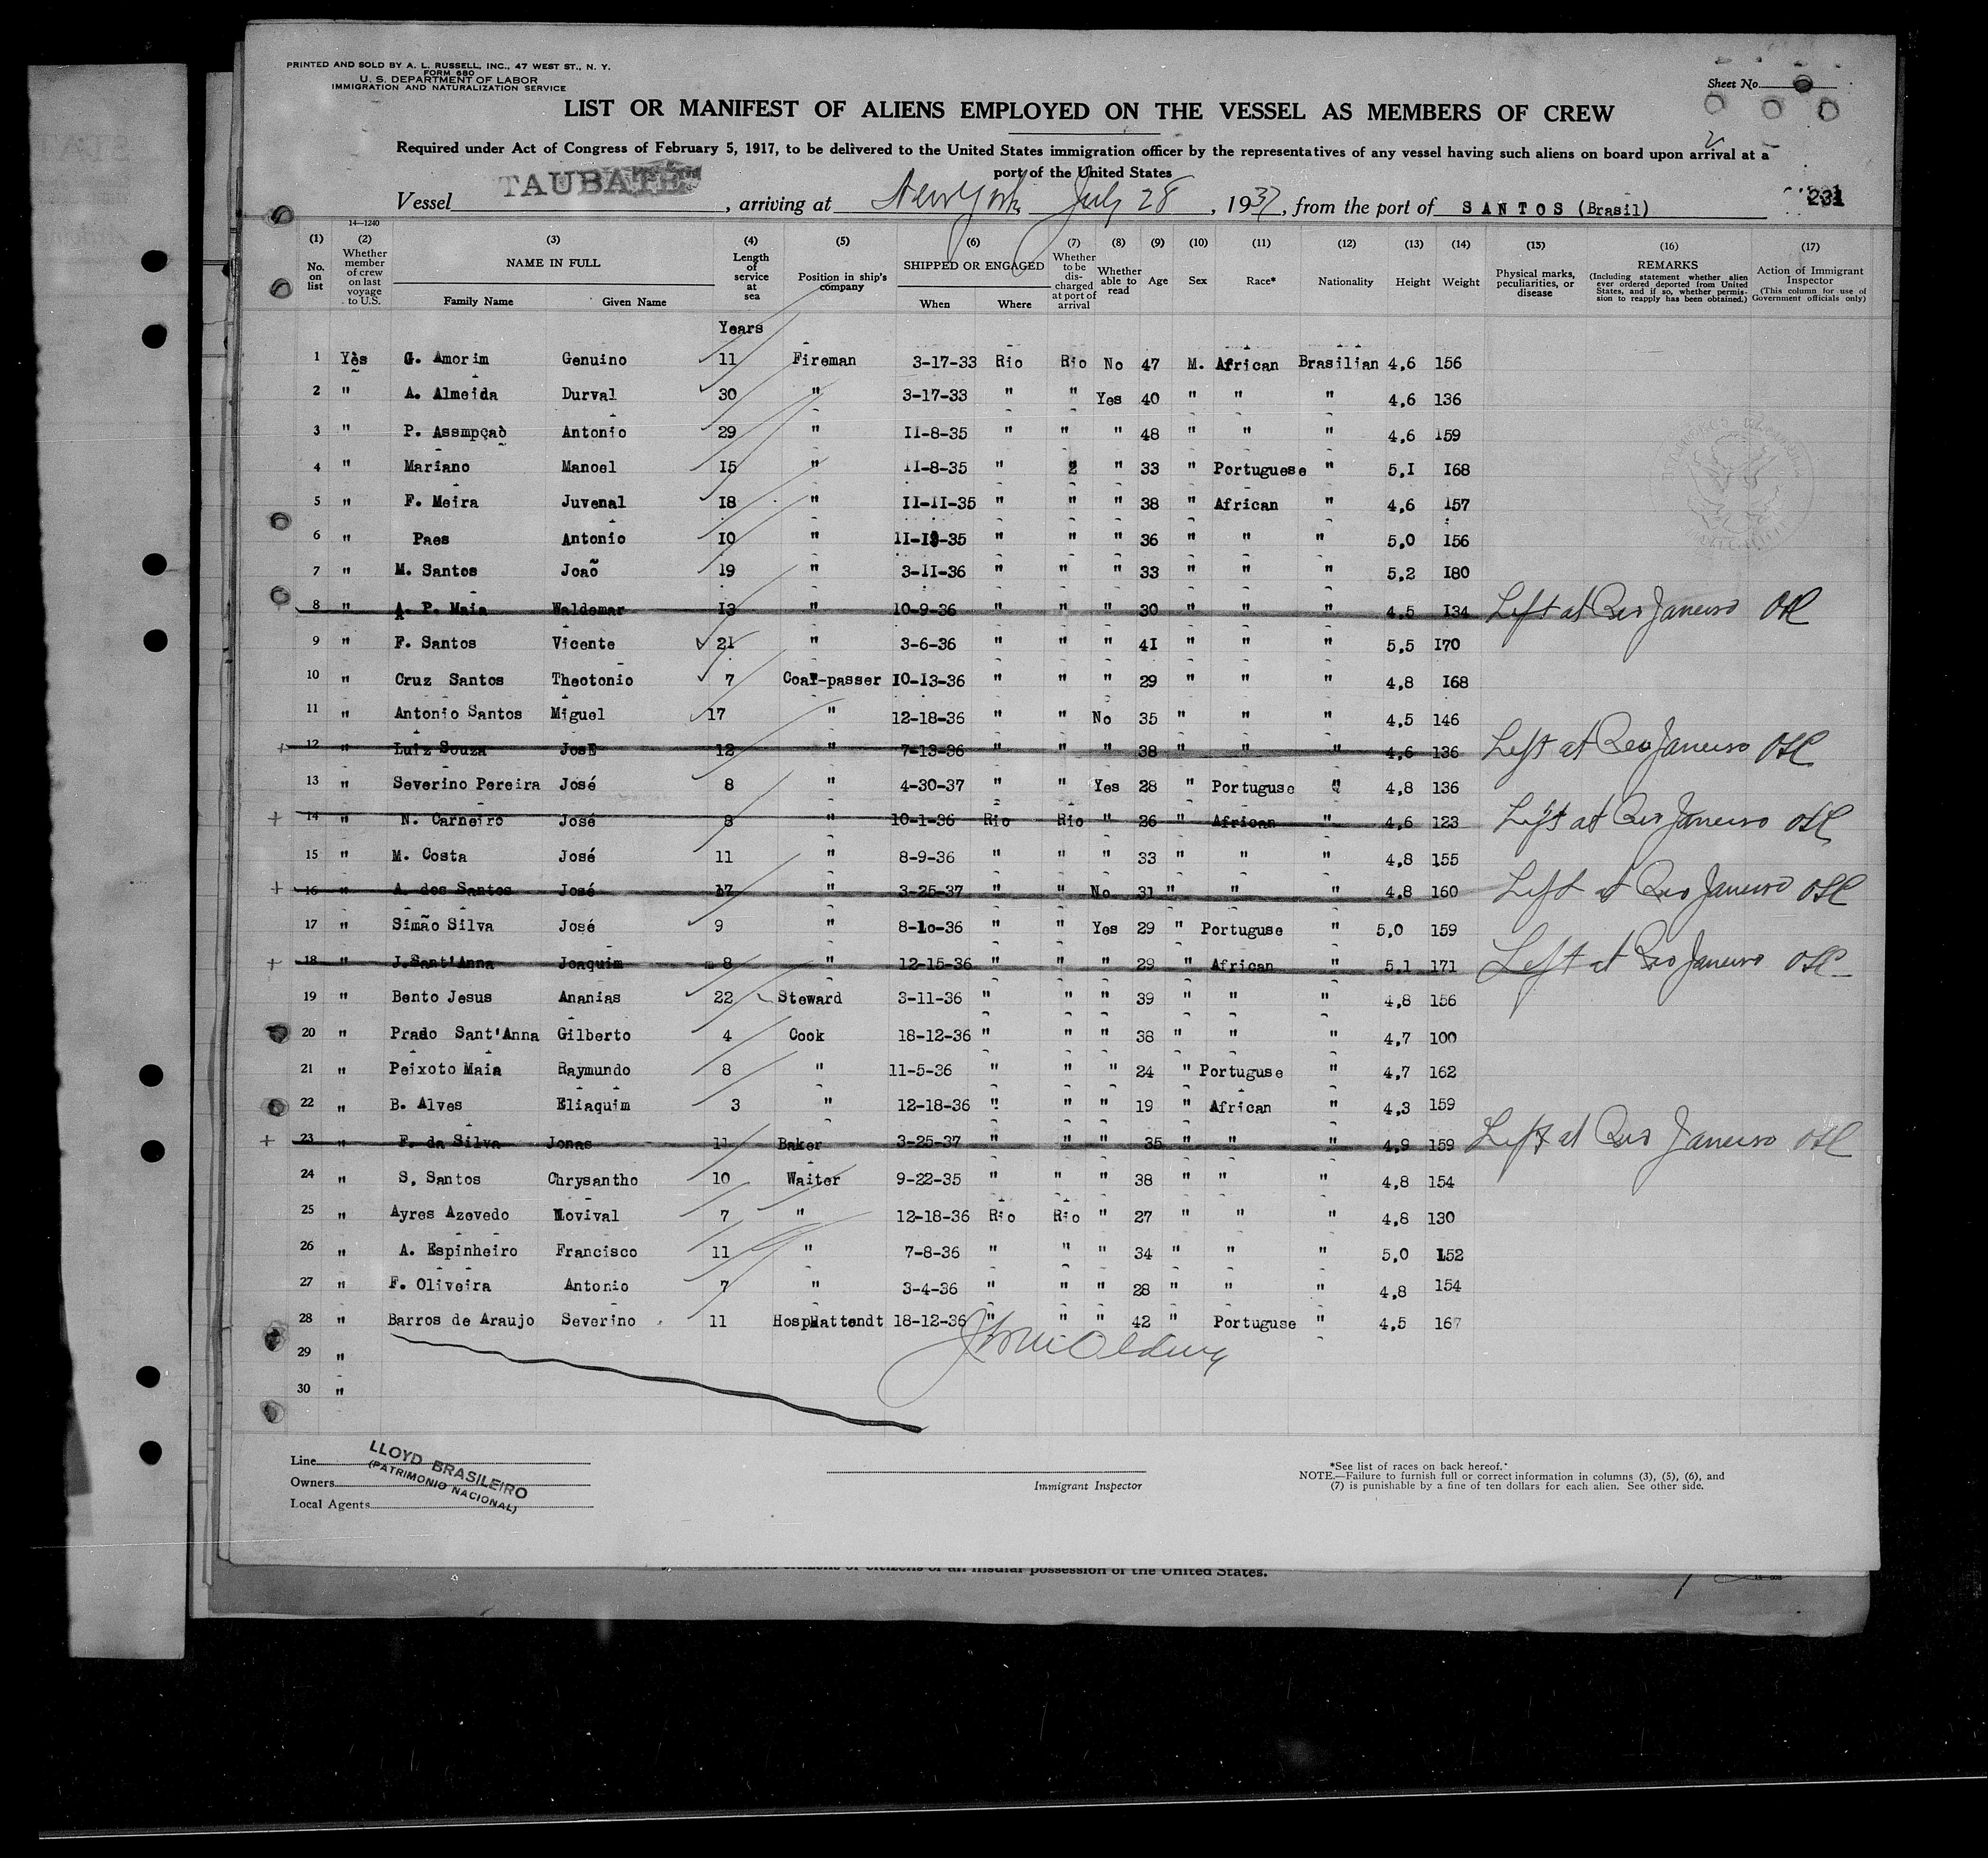 PRINTED AND SOLD BY A. L. RUSSELL, INC., 47 WEST ST., N. Y.
FORM 680
U. S. DEPARTMENT OF LABOR
IMMIGRATION AND NATURALIZATION SERVICE
Sheet No.
LIST OR MANIFEST OF ALIENS EMPLOYED ON THE VESSEL AS MEMBERS OF CREW
Required under Act of Congress of February 5, 1917, to be delivered to the United States immigration officer by the representatives of any vessel having such aliens on board upon arrival at a
port of the United States
Vessel TAUBATE, arriving at New York July 28, 1937, from the port of SANTOS (Brasil) 231
14—1240
(1) No. on list (2) Whether member of crew on last voyage to U.S. (3) NAME IN FULL Family Name Given Name (4) Length of service at sea (5) Position in ship's company (6) SHIPPED OR ENGAGED When Where (7) Whether to be discharged at port of arrival (8) Whether able to read (9) Age (10) Sex (11) Race* (12) Nationality (13) Height (14) Weight (15) Physical marks, peculiarities, or disease (16) REMARKS (Including statement whether alien ever ordered deported from United States, and if so, whether permission to reapply has been obtained.) (17) Action of Immigrant Inspector (This column for use of Government officials only)
Years
1 Yes G. Amorim Genuino 11 Fireman 3-17-33 Rio Rio No 47 M. African Brasilian 4,6 156
2 " A. Almeida Durval 30 " 3-17-33 " " Yes 40 " " " 4,6 136
3 " P. Assmpçaò Antonio 29 " II-8-35 " " " 48 " " " 4,6 159
4 " Mariano Manoel I5 " II-8-35 " 2 " 33 " Portuguese " 5,I I68
5 " F. Meira Juvenal I8 " II-II-35 " " " 38 " African " 4,6 157
6 " Paes Antonio IO " II-13-35 " " " 36 " " " 5,0 I56
7 " M. Santos Joaõ 19 " 3-II-36 " " " 33 " " " 5,2 I80
8 " A. P. Maia Waldemar I3 " 10-9-36 " " " 30 " " " 4,5 I34 Left at Rio Janeiro
9 " F. Santos Vicente 21 " 3-6-36 " " " 4I " " " 5,5 I70
10 " Cruz Santos Theotonio 7 Coal-passer IO-I3-36 " " " 29 " " " 4,8 I68
11 " Antonio Santos Miguel 17 " 12-18-36 " " No 35 " " " 4,5 146
12 " Luiz Souza JosE 12 " 7-13-36 " " " 38 " " " 4,6 136 Left at Rio Janeiro
13 " Severino Pereira José 8 " 4-30-37 " " Yes 28 " Portuguse " 4,8 136
14 " N. Carneiro José 8 " 10-1-36 Rio Rio " 26 " African " 4,6 123 Left at Rio Janeiro
15 " M. Costa José 11 " 8-9-36 " " " 33 " " " 4,8 155
16 " A. dos Santos José 17 " 3-25-37 " " No 31 " " " 4,8 160 Left at Rio Janeiro
17 " Simão Silva José 9 " 8-1o-36 " " Yes 29 " Portuguse " 5,0 159
18 " J.Sant'Anna Joaquim 8 " 12-15-36 " " " 29 " African " 5,1 171 Left at Rio Janeiro
19 " Bento Jesus Ananias 22 Steward 3-11-36 " " " 39 " " " 4,8 156
20 " Prado Sant'Anna Gilberto 4 Cook 18-12-36 " " " 38 " " " 4,7 100
21 " Peixoto Maia Raymundo 8 " 11-5-36 " " " 24 " Portuguse " 4,7 162
22 " B. Alves Eliaquim 3 " 12-18-36 " " " 19 " African " 4,3 159
23 " F. da Silva Jonas 11 Baker 3-25-37 " " " 35 " " " 4,9 159 Left at Rio Janeiro
24 " S. Santos Chrysantho 10 Waiter 9-22-35 " " " 38 " " " 4,8 154
25 " Ayres Azevedo 7 " 12-18-36 Rio Rio " 27 " " " 4,8 130
26 " A. Espinheiro Francisco 11 " 7-8-36 " " " 34 " " " 5,0 152
27 " F. Oliveira Antonio 7 " 3-4-36 " " " 28 " " " 4,8 154
28 " Barros de Araujo Severino 11 18-12-36 " " " 42 " Portuguse " 4,5 167
29 "
30 "
Line
Owners
Local Agents
LLOYD BRASILEIRO
(PATRIMONIO NACIONAL)
Immigrant Inspector
*See list of races on back hereof.
NOTE.—Failure to furnish full or correct information in columns (3), (5), (6), and
(7) is punishable by a fine of ten dollars for each alien. See other side.
citizens of an insular possession of the United States.